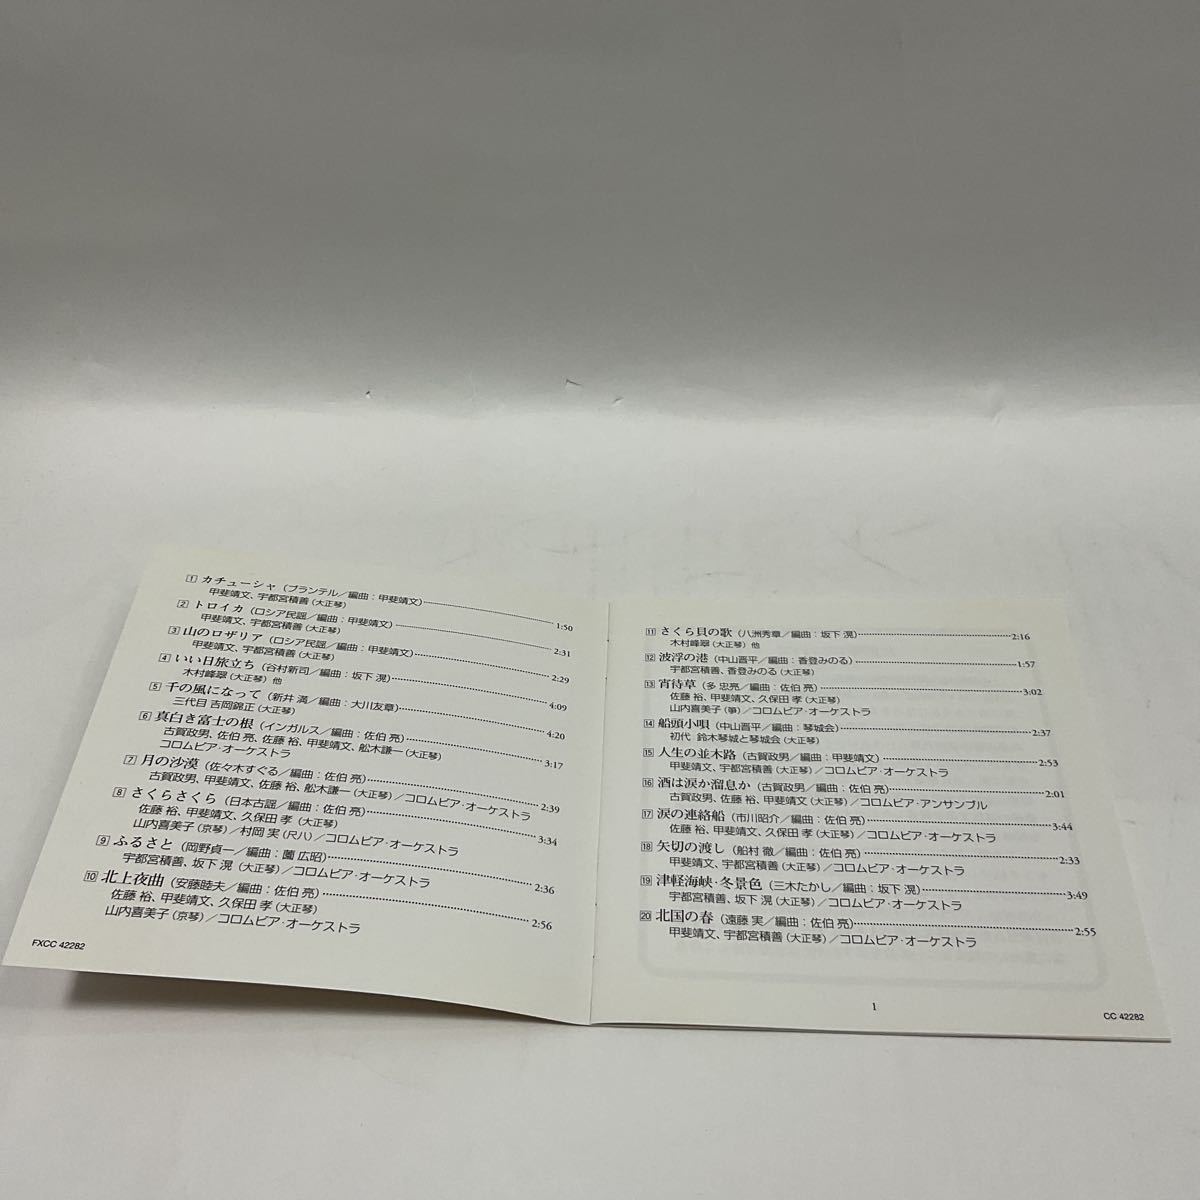 1 カチューシャ（ブランテル／編曲：甲斐靖文）……1:50
甲斐靖文、宇都宮積善（大正琴）
2 トロイカ（ロシア民謡／編曲：甲斐靖文）……2:31
甲斐靖文、宇都宮積善（大正琴）
3 山のロザリア（ロシア民謡／編曲：甲斐靖文）……2:29
甲斐靖文、宇都宮積善（大正琴）
4 いい日旅立ち（谷村新司／編曲：坂下 滉）……4:09
木村峰翠（大正琴）他
5 千の風になって（新井 満／編曲：大川友章）……4:20
三代目 吉岡錦正（大正琴）
6 真白き富士の根（インガルス／編曲：佐伯 亮）……3:17
古賀政男、佐伯 亮、佐藤 裕、甲斐靖文、舩木謙一（大正琴）
コロムビア・オーケストラ
7 月の沙漠（佐々木すぐる／編曲：佐伯 亮）……2:39
古賀政男、甲斐靖文、佐藤 裕、舩木謙一（大正琴）／コロムビア・オーケストラ
8 さくらさくら（日本古謡／編曲：佐伯 亮）……3:34
佐藤 裕、甲斐靖文、久保田 孝（大正琴）
山内喜美子（京琴）／村岡 実（尺八）／コロムビア・オーケストラ
9 ふるさと（岡野貞一／編曲：薗 広昭）……2:36
宇都宮積善、坂下 滉（大正琴）／コロムビア・オーケストラ
10 北上夜曲（安藤睦夫／編曲：佐伯 亮）……2:56
佐藤 裕、甲斐靖文、久保田 孝（大正琴）
山内喜美子（京琴）／コロムビア・オーケストラ
FXCC 42282
11 さくら貝の歌（八洲秀章／編曲：坂下 滉）……2:16
木村峰翠（大正琴）他
12 波浮の港（中山晋平／編曲：香登みのる）……1:57
宇都宮積善、香登みのる（大正琴）
13 宵待草（多 忠亮／編曲：佐伯 亮）……3:02
佐藤 裕、甲斐靖文、久保田 孝（大正琴）
山内喜美子（箏）／コロムビア・オーケストラ
14 船頭小唄（中山晋平／編曲：琴城会）……2:37
初代 鈴木琴城と琴城会（大正琴）
15 人生の並木路（古賀政男／編曲：甲斐靖文）……2:53
甲斐靖文、宇都宮積善（大正琴）／コロムビア・オーケストラ
16 酒は涙か溜息か（古賀政男／編曲：佐伯 亮）……2:01
古賀政男、佐藤 裕、甲斐靖文（大正琴）／コロムビア・アンサンブル
17 涙の連絡船（市川昭介／編曲：佐伯 亮）……3:44
佐藤 裕、甲斐靖文、久保田 孝（大正琴）／コロムビア・オーケストラ
18 矢切の渡し（船村 徹／編曲：佐伯 亮）……2:33
甲斐靖文、宇都宮積善（大正琴）／コロムビア・オーケストラ
19 津軽海峡・冬景色（三木たかし／編曲：坂下 滉）……3:49
宇都宮積善、坂下 滉（大正琴）／コロムビア・オーケストラ
20 北国の春（遠藤 実／編曲：佐伯 亮）……2:55
甲斐靖文、宇都宮積善（大正琴）／コロムビア・オーケストラ
1
CC 42282